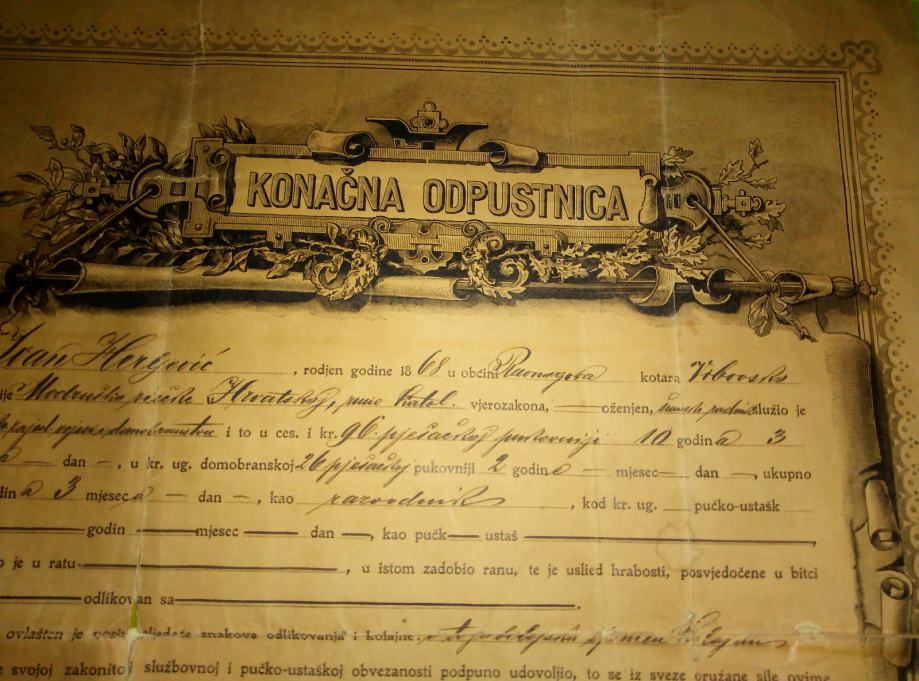 KONAČNA ODPUSTNICA
Ivan Herljević, rodjen godine 1868 u obćini Ravnagora kotara Vrbovsko
Modruško riečke Hrvatskoj, rim. katol. vjerozakona, — oženjen, služio je
i to u ces. i kr. 96. pješačkoj pukovniji 10 godina 3
— dan —, u kr. ug. domobranskoj 26 pješačkoj pukovniji 2 godine — mjesec — dan —, ukupno
3 mjeseca — dan —, kao razvodnik, kod kr. ug. pučko-ustašk
godin — mjesec — dan —, kao pučk — ustaš
je u ratu —, u istom zadobio ranu, te je uslied hrabosti, posvjedočene u bitci
odlikovan sa
ovlašten je nositi sljedeće znakove odlikovanja i kolajne: spomen kolajnu
svojoj zakonitoj službovnoj i pučko-ustaškoj obvezanosti podpuno udovoljio, to se iz sveze oružane sile ovime